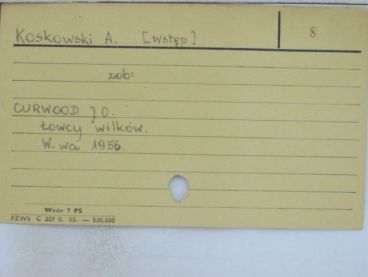 Koskowski A. [wstęp] 8
zob:
CURWOOD J O.
Łowcy wilków.
W-wa 1956.
Wzór 7 PS
PZWS C 207 8. 50. — 500,000